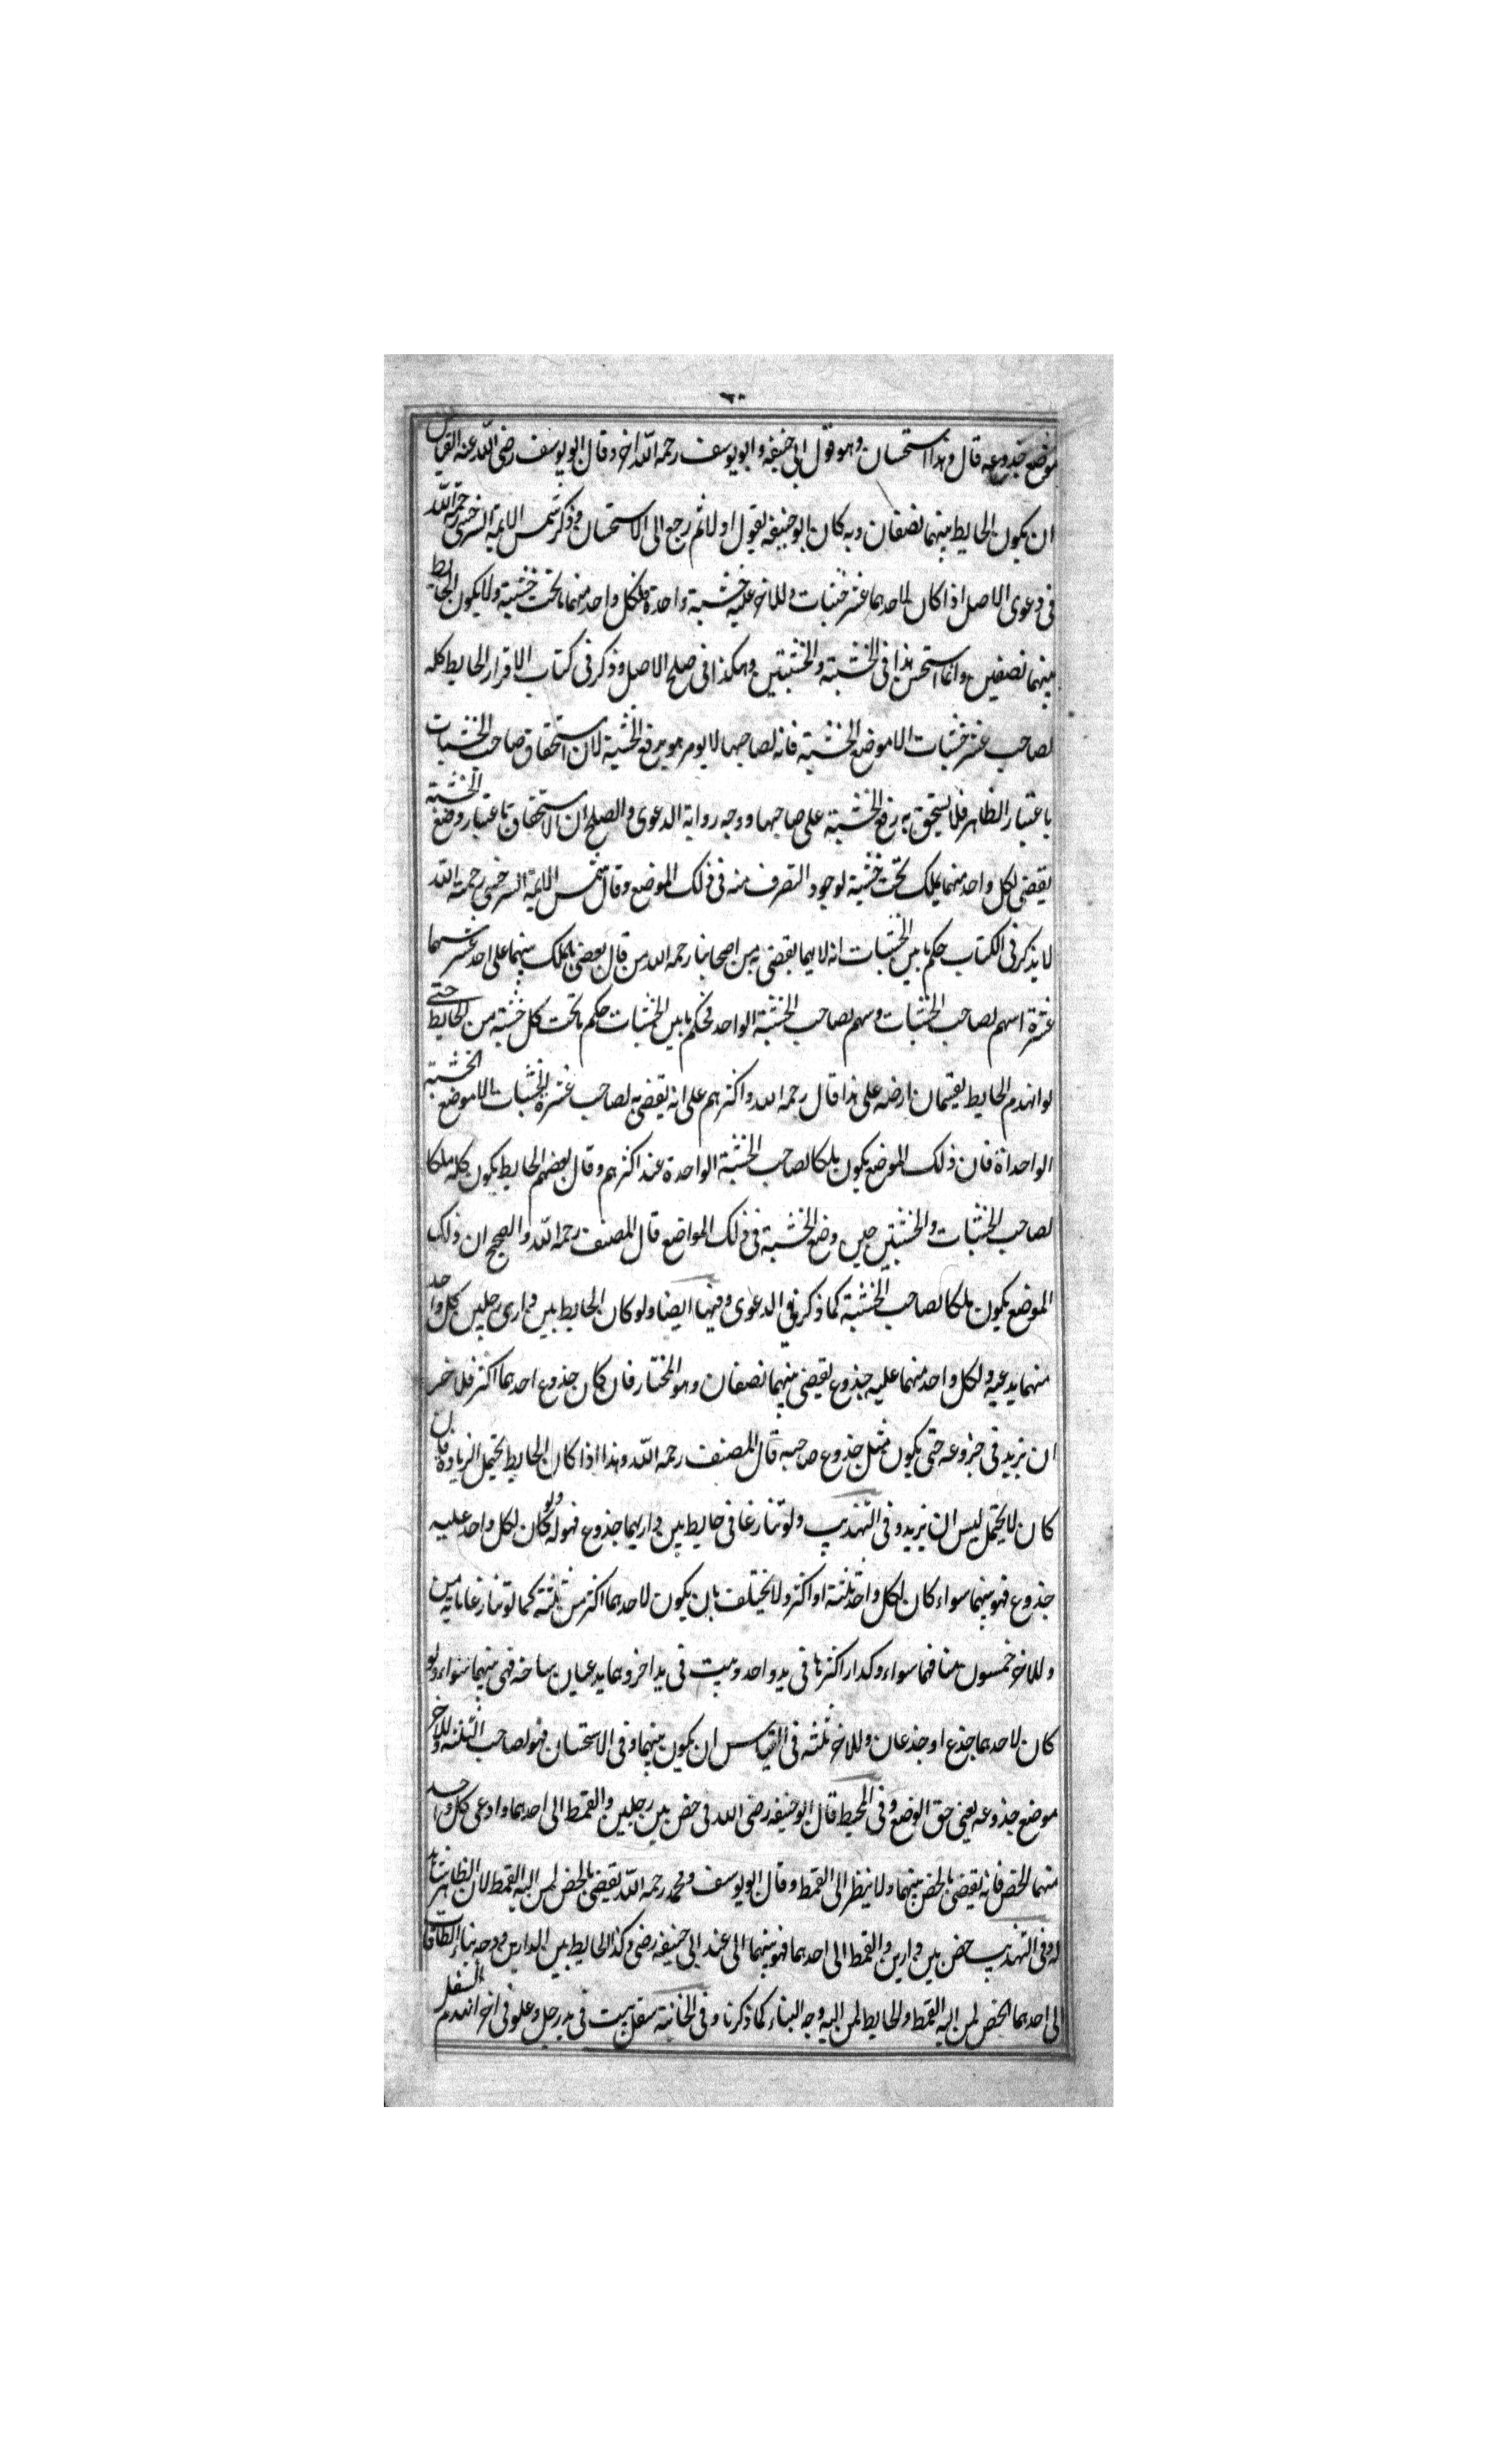 موضع جذوعه قال وهذا استحسان وهو قول ابي حنيفه وابو يوسف رحمه الله اخر وقال ابو يوسف رضي الله عنه القياس
ان يكون الحايط بينهما نصفان وبه كان ابو حنيفه يقول اولا ثم رجع الى الاستحسان وذكر شمس الايمة السرخسي رحمة الله
في دعوى الاصل اذا كان لاحدهما عشر خشبات وللاخر عليه خشبة واحدة فلكل واحد منهما ما تحت خشبة ولا يكون الحايط
بينهما نصفين وانما استحسن هذا في الخشبة والخشبتين وهكذا في صلح الاصل وذكر في كتاب الاقرار الحايط كله
لصاحب عشر خشبات الا موضع الخشبة فانه لصاحبها لا يومر هو برفع الخشبة لان استحقاق صاحب الخشبات
باعتبار الظاهر فلا يستحق به رفع الخشبة على صاحبها ووجه رواية الدعوى والصلح ان الاستحقاق باعتبار وضع الخشبة
يقضى لكل واحد منهما بملك تحت خشبة لوجود التصرف منه في ذلك الموضع وقال شمس الايمة السرخسي رحمة الله
لا يذكر في الكتاب حكم ما بين الخشبات انه لايهما يقضى به من اصحابنا رحمه الله من قال يقضى بالملك بينهما على احد عشر سهما
عشرة اسهم لصاحب الخشبات وسهم لصاحب الخشبة الواحد فحكم ما بين الخشبات حكم ما تحت كل خشبة من الحايط حتى
لو انهدم الحايط يقتسمان ارضه على هذا قال رحمه الله واكثرهم على انه يقضى به لصاحب عشرة الخشبات الا موضع الخشبة
الواحداة فان ذلك الموضع يكون ملكا لصاحب الخشبة الواحدة عند اكثرهم وقال بعضهم الحايط يكون كله ملكا
لصاحب الخشبات والخشبتين حين وضع الخشبة في ذلك المواضع قال المصنف رحمه الله والصحيح ان ذلك
الموضع يكون ملكا لصاحب الخشبة كما ذكر في الدعوى وفيها ايضا ولو كان الحايط بين داري رجلين كل واحد
منهما يدعيه ولكل واحد منهما عليه جذوع يقضى بينهما نصفان وهو المختار فان كان جذوع احدهما اكثر فلاخر
ان يزيد في جزوعه حتى يكون مثل جذوع صاحبه قال المصنف رحمه الله وهذا اذا كان الحايط يحتمل الزيادة فان
كان لا يحتمل ليس ان يزيد وفي التهذيب ولو تنازعا في حايط بين داريهما جذوع فهو له ولو كان لكل واحد عليه
جذوع فهو بينهما سواء كان لكل واحد ثلثة او اكثر ولا يختلف بان يكون لاحدهما اكثر من ثلثة كما لو تنازعا مايه من
وللاخر خمسون منا فهما سواء وكدار اكثرها في يد واحد وبيت في يد اخر وهما يدعيان ساحة فهي بينهما سواء ولو
كان لاحدهما جذع او جذعان وللاخر ثلثه في القياس ان يكون بينهما وفي الاستحسان فهو لصاحب الثلثة وللاخر
موضع جذوعه يعني حق الوضع وفي المحيط قال ابو حنيفه رضي الله في خص بين رجلين والقمط الى احدهما وادعى كل واحد
منهما الخص فانه يقضى بالخص بينهما ولا ينظر الى القمط وقال ابو يوسف ومحمد رحمه الله يقضى بالخص لمن اليه القمط لان الظاهر شاهد
له وفي التهذيب خص بين دارين والقمط الى احدهما فهو بينهما الى عند ابي حنيفه رضي وكذا الحايط بين الدارين ووجه بناء الطاقات
الى احدهما الخص لمن اليه القمط والحايط لمن اليه وجه البناء كما ذكرنا وفي الخانية سفل بيت في يد رجل وعلو في اخر انهدم السفل